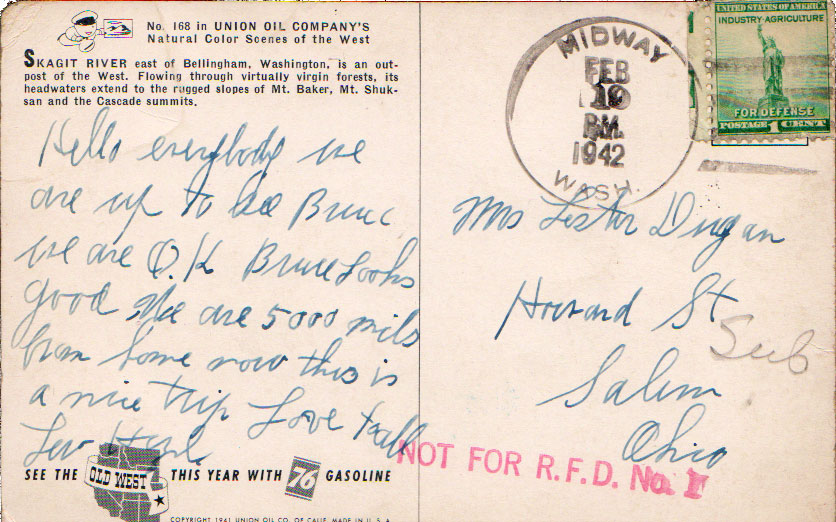 No. 168 in UNION OIL COMPANY'S
Natural Color Scenes of the West
SKAGIT RIVER east of Bellingham, Washington, is an out-
post of the West. Flowing through virtually virgin forests, its
headwaters extend to the rugged slopes of Mt. Baker, Mt. Shuk-
san and the Cascade summits.
Hello everybody we
are up to see Bruce
we are O.K Bruce Looks
good We are 5000 mils
from home now this is
a nice trip Love to all
SEE THE OLD WEST THIS YEAR WITH 76 GASOLINE
COPYRIGHT 1941 UNION OIL CO. OF CALIF. MADE IN U.S.A.
MIDWAY
FEB
19
P.M.
1942
WASH.
UNITED STATES OF AMERICA
INDUSTRY·AGRICULTURE
FOR DEFENSE
POSTAGE 1 CENT
Mrs Lester Dugan
Howard St
Sub
Salem
Ohio
NOT FOR R.F.D. No. 1